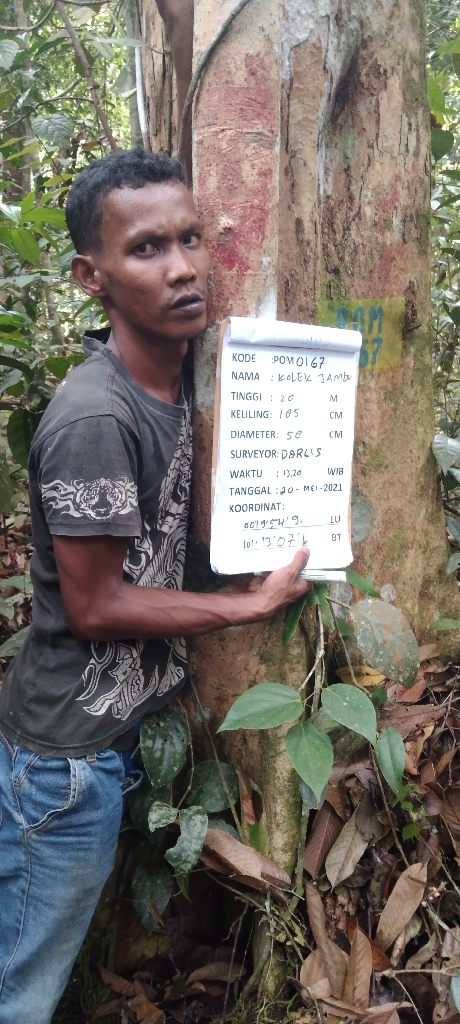 KODE :POM0167
NAMA : KOLEK JAMBU
TINGGI : 20 M
KELILING : 185 CM
DIAMETER : 58 CM
SURVEYOR: DARLIS
WAKTU : 13,20 WIB
TANGGAL : 20-MEI-2021
KOORDINAT:
LU
BT
POM
67